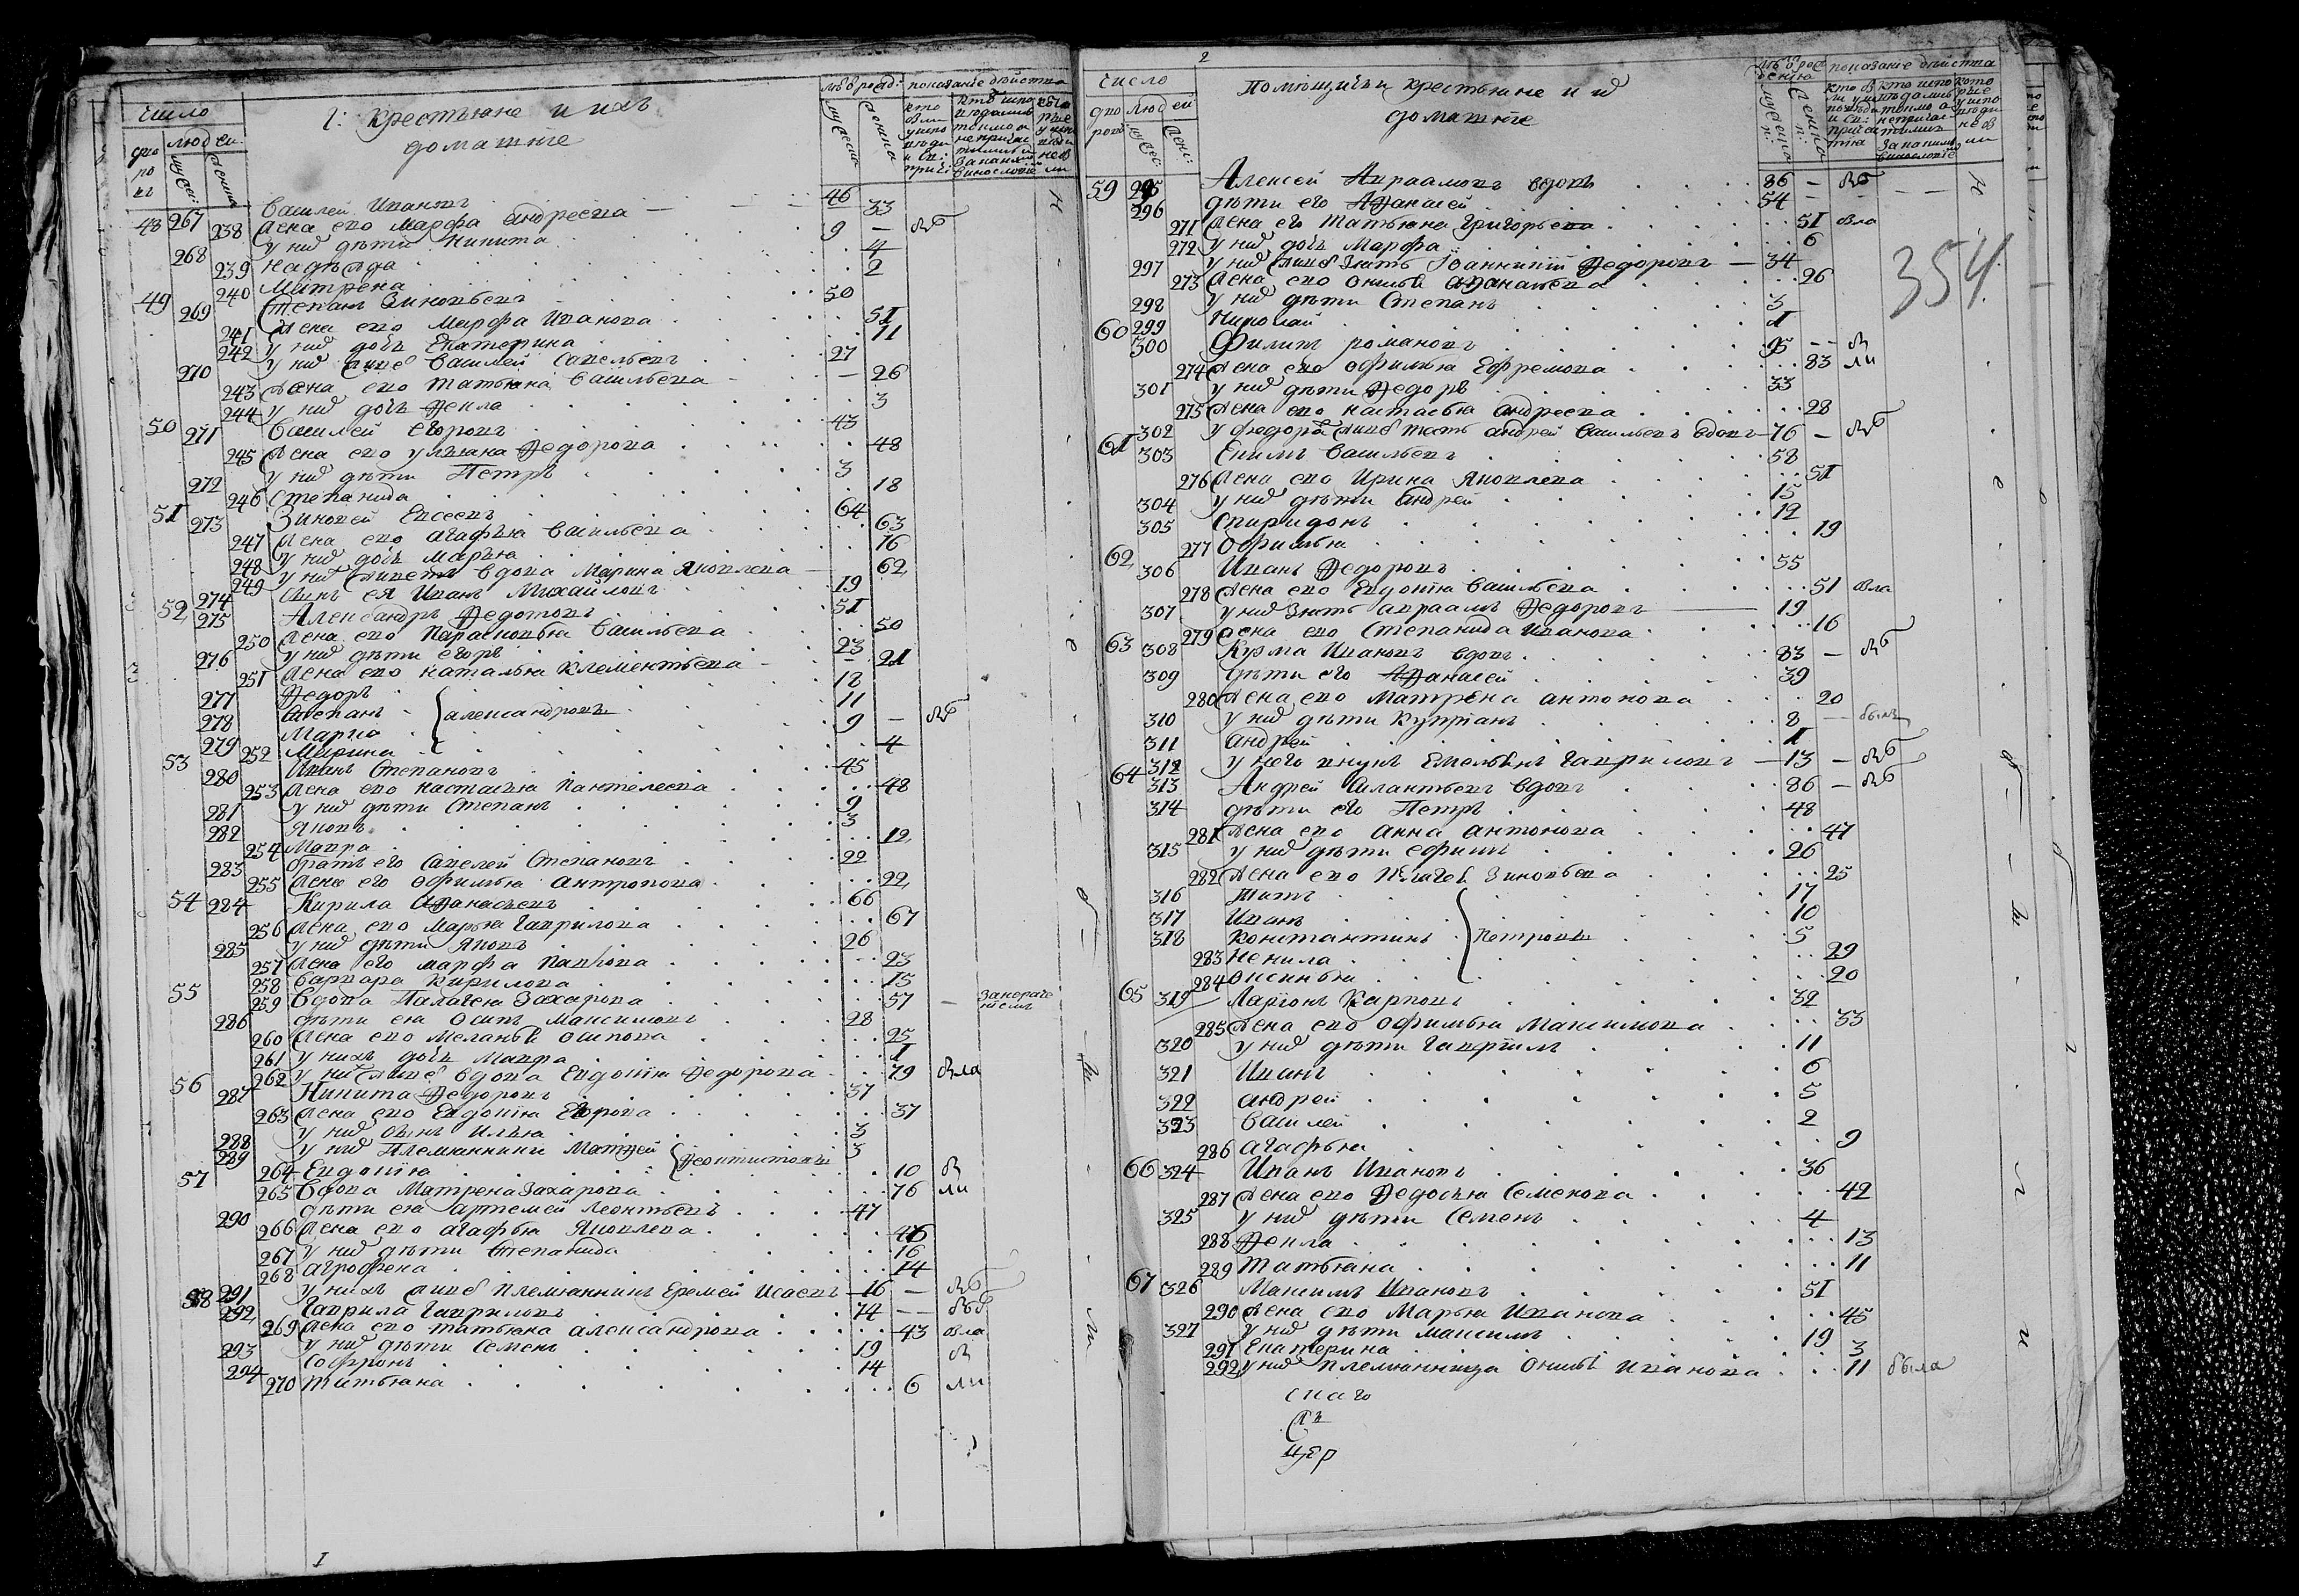 число
дво
ро
въ
людей.
мужес:
женска
г: Крестьяне и ихъ
домашніе
лѣ в рожд:
мужеска
женска
показаніе дѣйства
43 267 Василей Ивановъ 46
238 жена ево Марфа андреева 33
268 у них дѣти Никита 9 — вб
239 надѣжда 4
240 Матрена 2
49 269 Степанъ Зиновьевъ 50
241 жена ево Марфа Иванова 51
242 у них дочь Екатерина 11
270 у них живе Василей Савельевъ 27
243 жена ево татьяна васильева — 26
244 у них дочь Фекла 3
50 271 Василей Егоровъ 43
245 жена ево ульяна Федорова 48
272 у них дѣти Петръ 3
246 Степанида 18
51 273 Зиновей Евсеевъ 64
247 жена ево агафья васильева 63
248 у них дочь Марья 16
249 у них живетъ вдова Марина Яковлева 62
274 сынъ ея Иванъ Михайловъ 19
52 275 Александръ Федотовъ 51
250 жена ево Парасковья васильева 50
276 у них дѣти егоръ 23
251 жена ево наталья клементьева — 21
277 Федоръ 18
278 Степанъ александровы 11
279 Марко 9 — вб
252 Марина 4
53 280 Иванъ Степановъ 45
253 жена ево настасья Пантелеева 48
281 у них дѣти Степанъ 9
282 Яковъ 3
254 Мавра 12
283 братъ его Савелей Степановъ 22
255 жена его офимья антропова 22
54 284 Кирила Афанасьевъ 66
256 жена ево марья гаврилова 67
285 у них дѣти Яковъ 26
257 жена его марфа павлова 23
258 варвара Кирилова 15
55 259 Вдова Палагея Захарова 57
286 дѣти ея Осипъ максимовъ 28
260 жена ево Меланья осипова 25
261 у нихъ дочь Мавра 1
262 у них живе вдова Евдокія Федорова 79 вла
56 287 Никита Федоровъ 37
263 жена ево Евдокия Егорова 37
288 у них сынъ Илья 3
289 у них Племянники Матфей Феоктистовы 3
264 Евдокія 10 в
57 265 Вдова Матрена Захарова 76 ли
290 дѣти ея артемей леонтьевъ 47
266 жена ево агафья Яковлева 46
267 у них дѣти Степанида 16
268 агрофена 14
291 у нихъ живе племянникъ Еремей Исаевъ 16 — вб
58 292 Гаврила Гавриловъ 74 — вб
269 жена ево татьяна александрова 43 вла
293 у них дѣти Семенъ 19 в
294 Софронъ 14
270 татьяна 6 ли
1
2
число
дво
ровъ
людей
мужес:
жен:
помѣщичьи крестьяне и их
домашніе
показаніе дѣйства
354
59 295 Алексей Авраамовъ вдовъ 86 — вб
296 дѣти его Афанасей 54
271 жена его татьяна григорьева 51 вла
272 у них дочь Марфа 6
297 у них живе зять Іоанникій Федоровъ — 34
273 жена ево Афанасьева 26
298 у них дѣти Степанъ 3
299 Николай 1
60 300 Филипъ романовъ 95 — в
274 жена ево офимья Ефремова 83 ли
301 у них дѣти Федоръ 33
275 жена ево настасья андреева 28
302 у Федора живе тесть андрей васильевъ вдовъ 76 — вб
61 303 Екимъ васильевъ 58
276 жена ево Ирина Яковлева 51
304 у них дѣти андрей 15
305 спиридонъ 12
277 Офимья 19
62 306 Иванъ Федоровъ 55
278 жена ево Евдокія васильева 51 вла
307 у них зять авраамъ Федоровъ 19
279 жена ево Степанида иванова 16
63 308 Кузма Ивановъ вдовъ 83 — вб
309 дѣти его Афанасей 39
280 жена ево матрена антонова 20
310 у них дѣти купріанъ 8 — былъ
311 андрей 1
312 у него внукъ Емельянъ гавриловъ 13 — вб
64 313 Андрей Силантьевъ вдовъ 86 — вб
314 дѣти его Петръ 48
281 жена ево анна антонова 47
315 у них дѣти ефимъ 26
282 жена ево Пелагея Зиновьева 25
316 титъ 17
317 Иванъ 10
318 константинъ Петровы 5
283 Ненила 29
284 оксинья 20
65 319 Ларіонъ Карповъ 32
285 жена ево офимья Максимова 33
320 у них дѣти гавріилъ 11
321 Иванъ 6
322 андрей 5
323 василей 2
286 агафья 9
66 324 Иванъ Ивановъ 36
287 жена ево Федосья Семенова 42
325 у них дѣти Семенъ 4
288 Фекла 13
289 татьяна 11
67 326 Максимъ Ивановъ 51
290 жена ево Марья Иванова 45
327 у них дѣти максимъ 19
291 Екатерина 3
292 у них племянница иванова 11 была